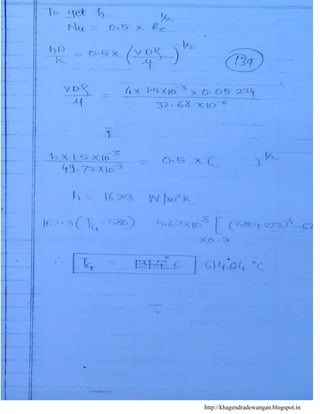 To get h
Nu = 0.5 × Re^1/2
hD/K = 0.5 × (VDρ/μ)^1/2
139
VDρ/μ = 4 × 1.5×10^-3 × 0.05224 / 32.68 ×10^-6
h × 1.5 ×10^-3 / 49.72×10^-3 = 0.5 × ( )^1/2
h = 162.3 W/m²K
162.3 (T_G - 580) = 5.67×10^-8 [ (580+273)^4 - 
×0.3
∴ T_G = 614.04 °C
http://khagendradewangan.blogspot.in